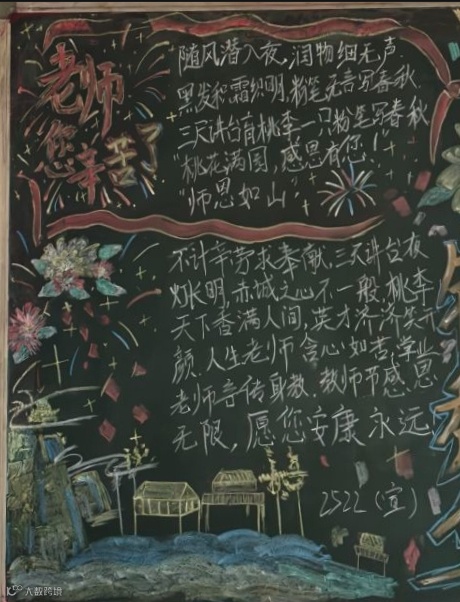 老师
您辛苦了
随风潜入夜,润物细无声.
黑发积霜织明,粉笔无言写春秋.
三尺讲台育桃李,一只粉笔写春秋
"桃花满园,感恩有您!"
"师恩如山"
不计辛劳求奉献,三尺讲台夜
灯长明,赤城之心不一般,桃李
天下香满人间,英才济济笑开
颜.人生老师含心如苦,学业
老师言传身教.教师节感恩
无限,愿您安康永远
2522(宣)
大数跨境